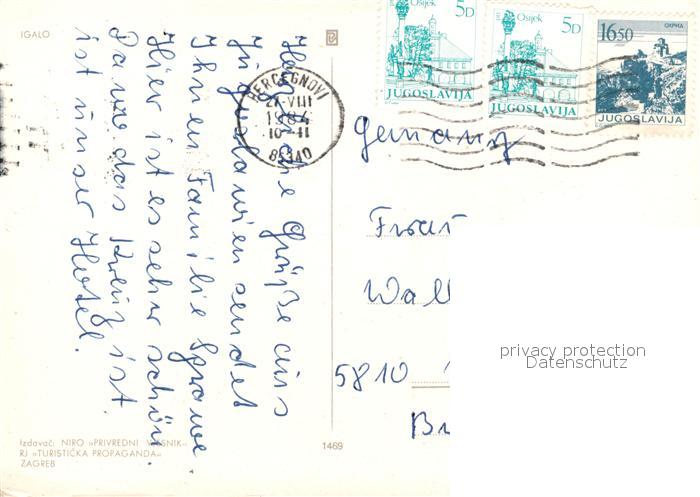 IGALO
Herzliche Grüße aus
Jugoslawien sendet
Ihnen Familie
Hier ist es sehr schön.
Da wo das Kreuz ist
ist unser Hotel.
Osijek 5D
JUGOSLAVIJA
Osijek 5D
JUGOSLAVIJA
16 50 ОХРИД
JUGOSLAVIJA
HERCEGNOVI
27 VIII
10-11
85340
Germany
Frau
Wall
5810
privacy protection
Datenschutz
Izdavač: NIRO »PRIVREDNI VJESNIK«
RJ »TURISTIČKA PROPAGANDA«
ZAGREB
1469